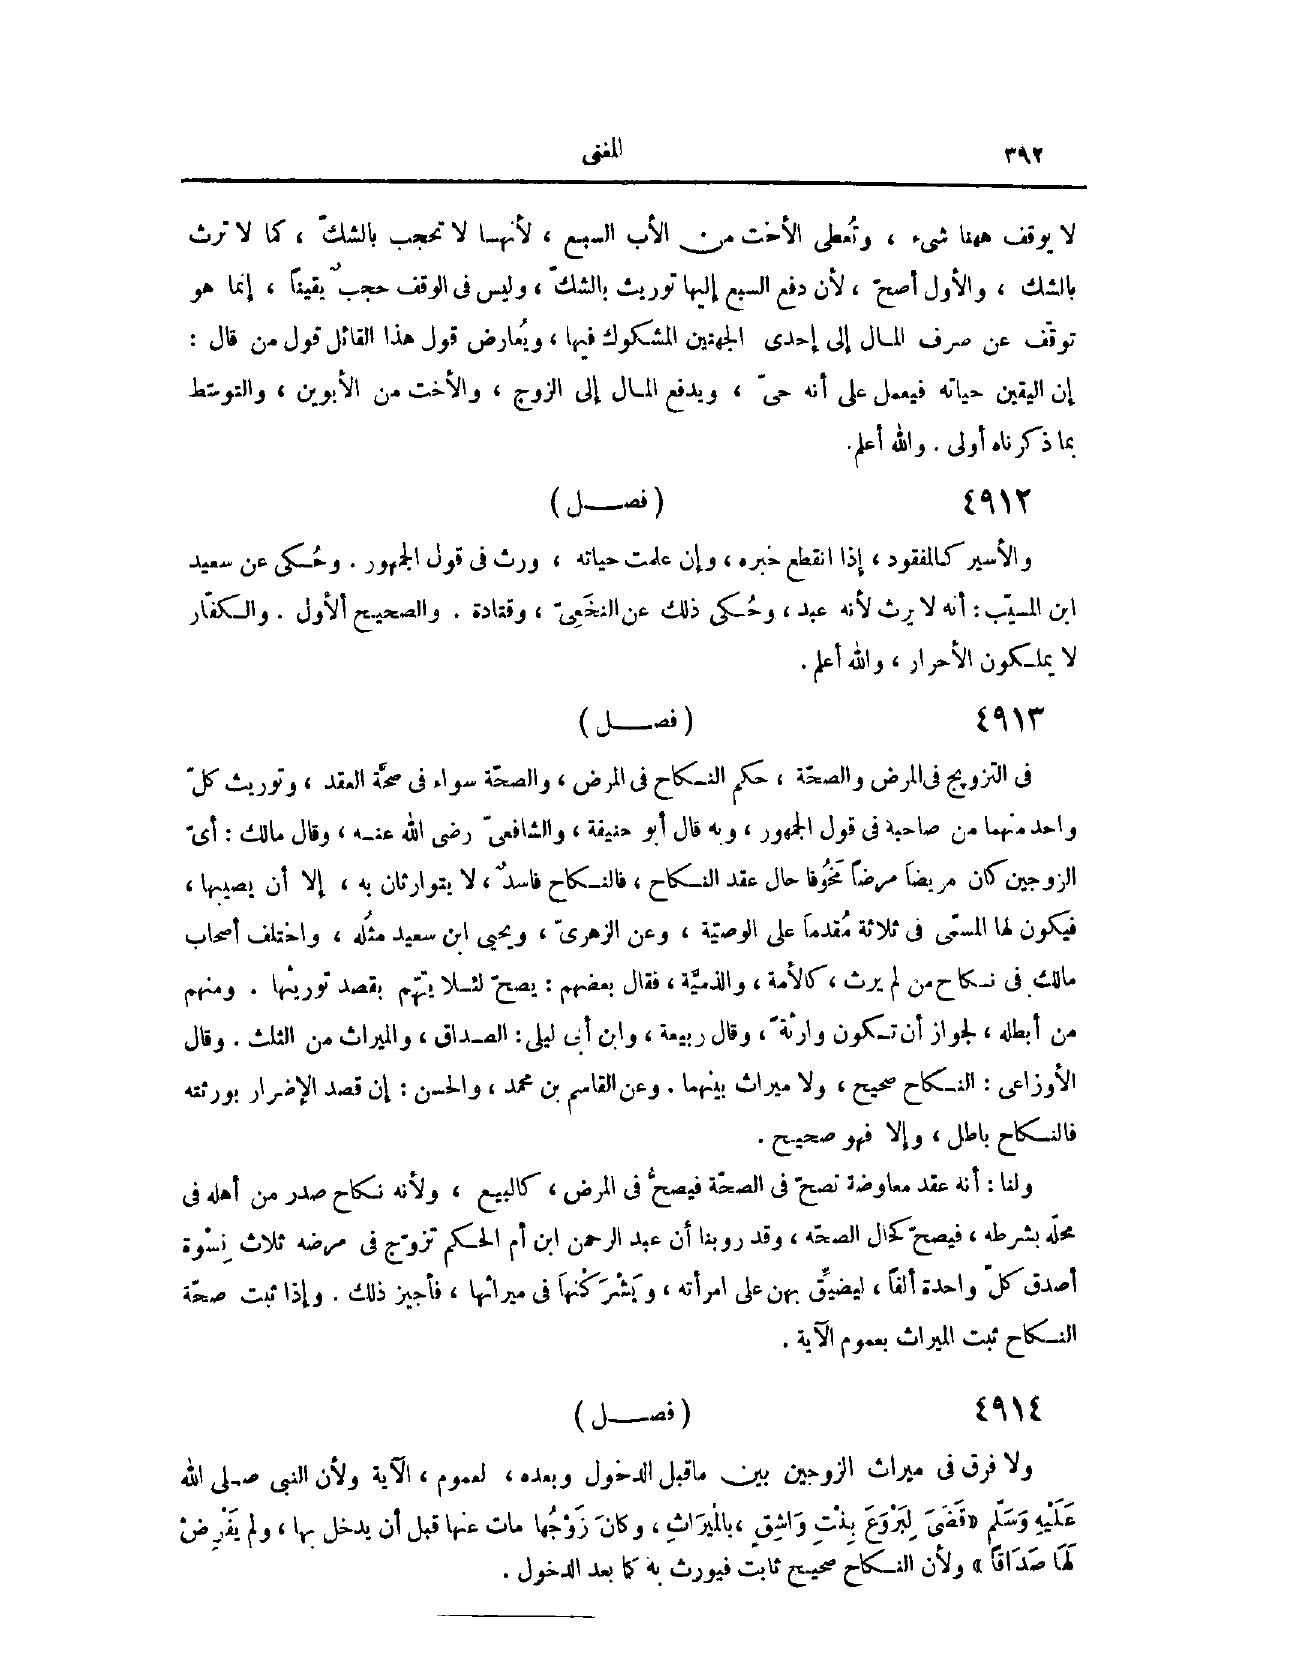 ٣٩٢
المغنى
لا يوقف ههنا شىء ، وتُعطى الأخت من الأب السبع ، لأنهـا لا تحجب بالشكّ ، كما لا ترث
بالشك ، والأول أصحّ ، لأن دفع السبع إليها توريث بالشكّ ، وليس فى الوقف حجبٌ يقيناً ، إنما هو
توقّف عن صرف المـال إلى إحدى الجهتين المشكوك فيها ، ويُعارض قول هذا القائل قول من قال :
إن اليقين حياته فيعمل على أنه حىّ ، ويدفع المـال إلى الزوج ، والأخت من الأبوين ، والتوسّط
بما ذكرناه أولى . والله أعلم.
٤٩١٢
( فصـــل )
والأسير كالمفقود ، إذا انقطع خبره ، وإن علمت حياته ، ورث فى قول الجمهور . وحُكى عن سعيد
ابن المسيّب : أنه لا يرث لأنه عبد ، وحُكى ذلك عن النخَعِىّ ، وقتادة . والصحيح الأول . والـكفّار
لا يملـكون الأحرار ، والله أعلم .
٤٩١٣
( فصـــل )
فى التزويج فى المرض والصحّة ، حكم النـكاح فى المرض ، والصحّة سواء فى صحّة العقد ، وتوريث كلّ
واحد منهما من صاحبة فى قول الجمهور ، وبه قال أبو حنيفة ، والشافعىّ رضى الله عنـه ، وقال مالك : أىّ
الزوجين كان مريضاً مرضاً مَخُوفا حال عقد النـكاح ، فالنـكاح فاسدٌ ، لا يتوارثان به ، إلا أن يصيبها ،
فيكون لها المسمّى فى ثلاثة مُقدماً على الوصيّة ، وعن الزهرىّ ، ويحيى ابن سعيد مثلُه ، واختلف أصحاب
مالك فى نـكاح من لم يرث ، كالأمة ، والذميّة ، فقال بعضهم : يصحّ لئـلا يتّهم بقصد توريثها . ومنهم
من أبطله ، لجواز أن تـكون وارثةً ، وقال ربيعة ، وابن أبى ليلى : الصـداق ، والميراث من الثلث . وقال
الأوزاعى : النـكاح صحيح ، ولا ميراث بينهما . وعن القاسم بن محمد ، والحسن : إن قصد الإضرار بورثته
فالنـكاح باطل ، وإلا فهو صحيح .
ولنا : أنه عقد معاوضة تصحّ فى الصحّة فيصحُّ فى المرض ، كالبيع ، ولأنه نـكاح صدر من أهله فى
محلّه بشرطه ، فيصحّ كحال الصحّه ، وقد روينا أن عبد الرحمن ابن أم الحـكم تزوّج فى مرضه ثلاث نِسْوة
أصدق كلّ واحدة ألفاً ، ليضيِّق بهن على امرأته ، ويَشْرَكْنها فى ميراثها ، فأجيز ذلك . وإذا ثبت صحّة
النـكاح ثبت الميراث بعموم الآية .
٤٩١٤
( فصـــل )
ولا فرق فى ميراث الزوجين بين ماقبل الدخول وبعده ، لعموم ، الآية ولأن النبى صـلى الله
عَلَيْهِ وَسَلّم «قَضَىَ لِبَرْوَعَ بِنْتِ وَاشِقٍ ، بالْمِيرَاثِ ، وكانَ زَوْجُها مات عنها قبل أن يدخل بها ، ولم يَفْرِضْ
لَهَا صَدَاقاً » ولأن النـكاح صحيح ثابت فيورث به كما بعد الدخول .